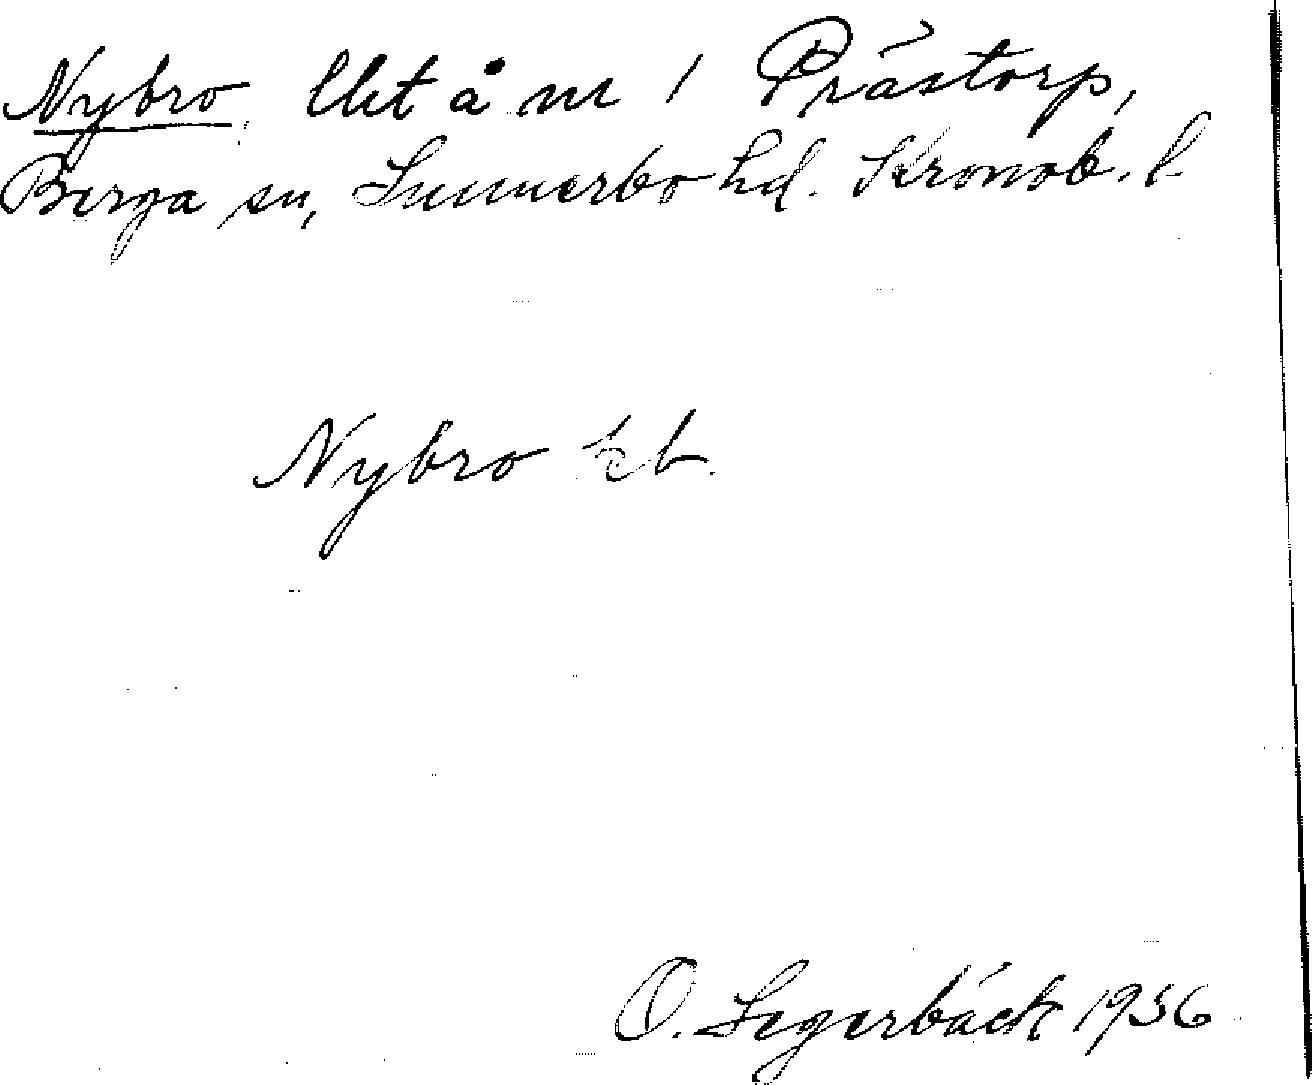 Nybro, lht å nr 1 Prästorp,
Berga sn, Sunnerbo hd. Kronob. l.
Nybro kb.
O. Segerbäck 1936